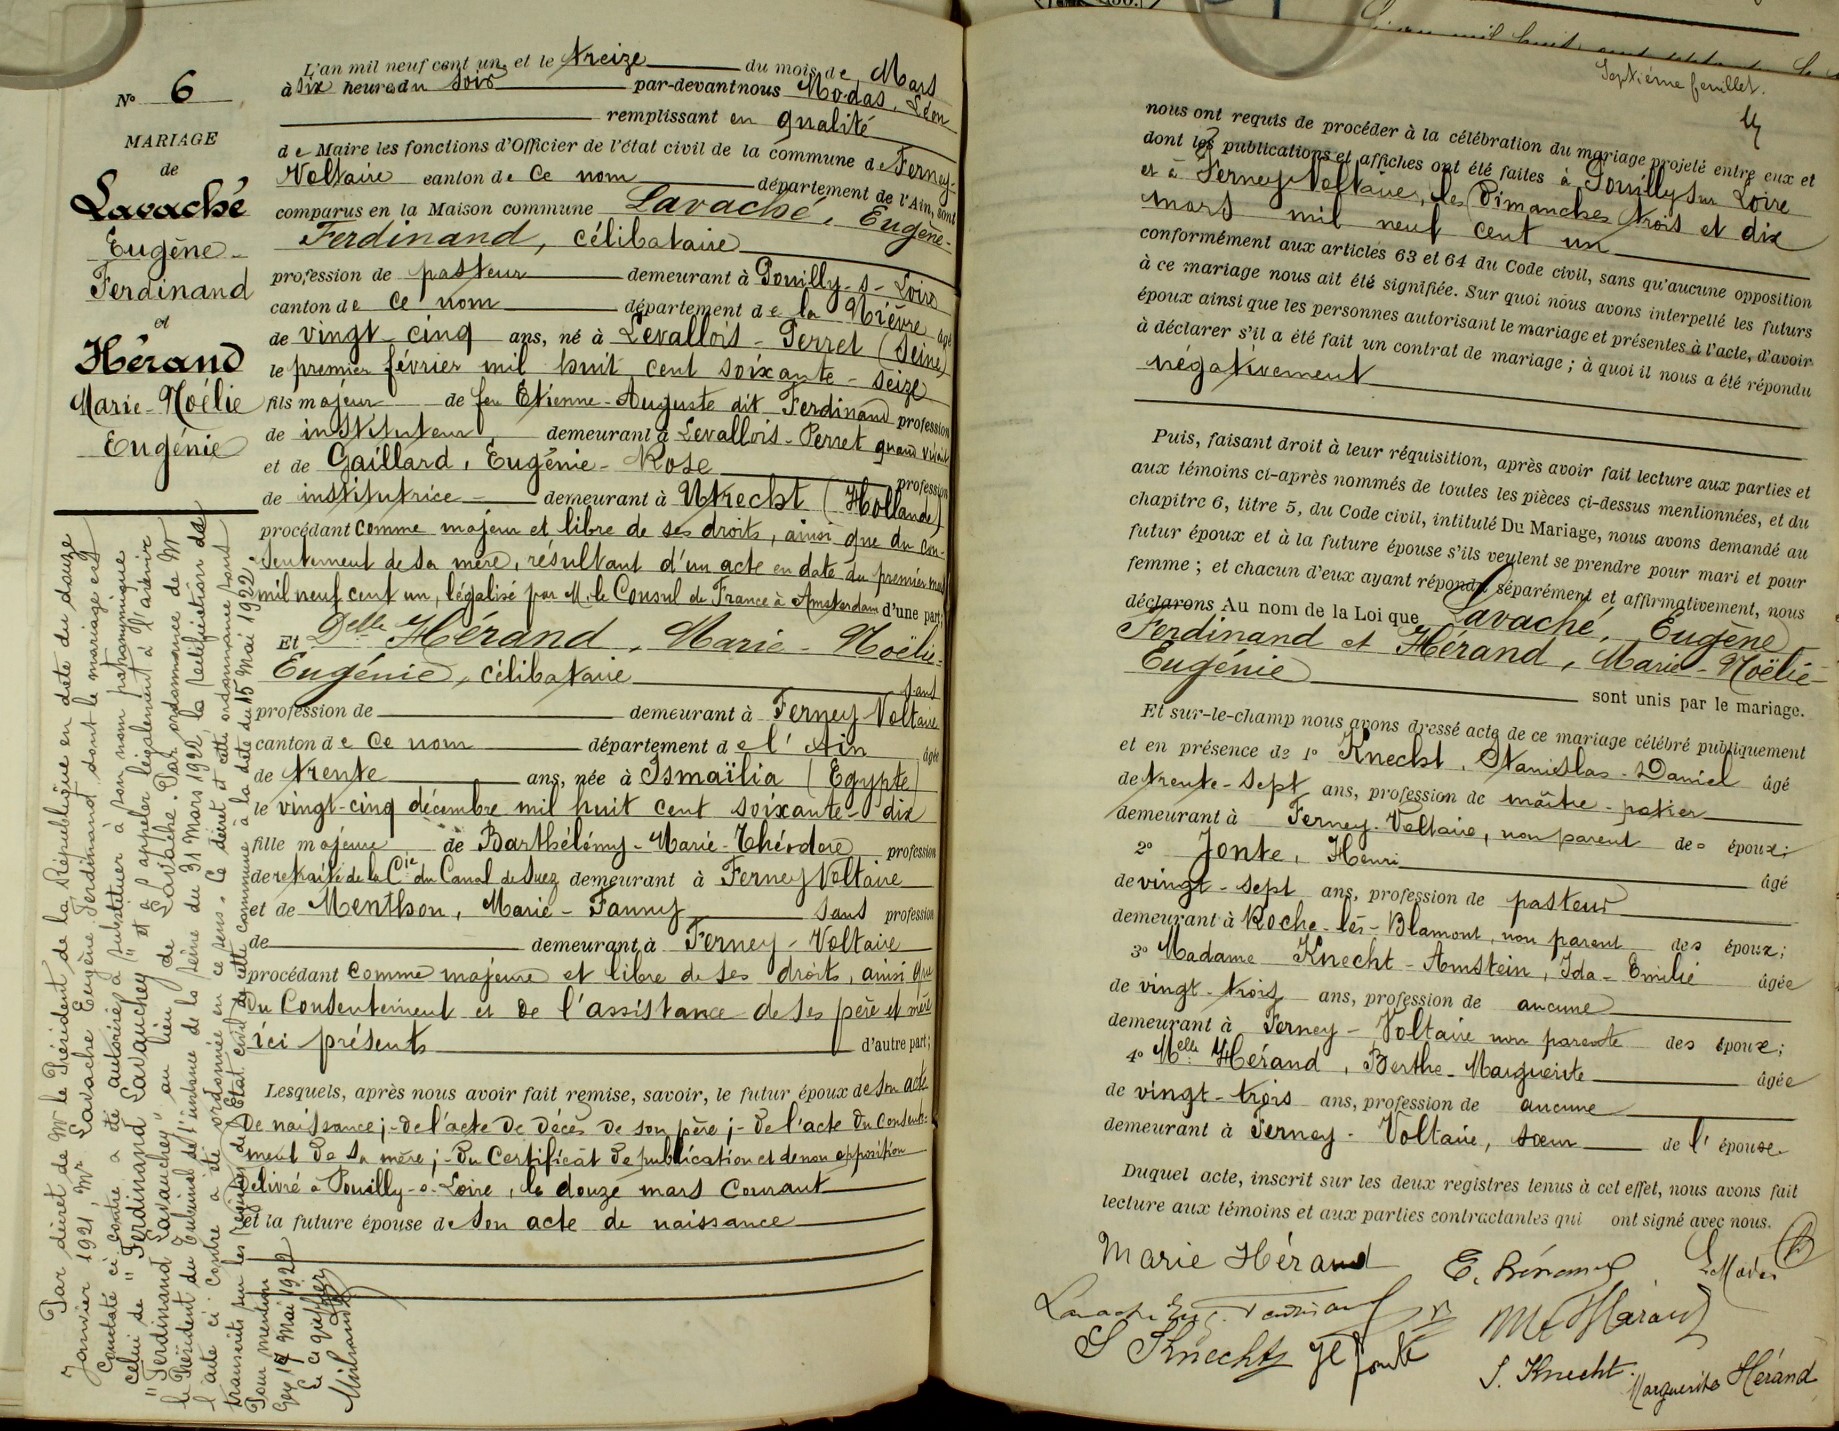 N° 6
MARIAGE
de
Lavaché
Eugène-
Ferdinand
et
Hérand
Marie-Noélie
Eugénie
L'an mil neuf cent un, et le treize du mois de Mars
à six heures du soir par-devant nous Modas, Léon
remplissant en qualité
de Maire les fonctions d'Officier de l'état civil de la commune de Ferney-
Voltaire canton de ce nom département de l'Ain, sont
comparus en la Maison commune Lavaché, Eugène-
Ferdinand, célibataire
profession de pasteur demeurant à Pouilly-s-Loire
canton de ce nom département de la Nièvre âgé
de vingt-cinq ans, né à Levallois-Perret (Seine)
le premier février mil huit cent soixante-seize
fils majeur de feu Etienne-Auguste dit Ferdinand profession
de instituteur demeurant à Levallois-Perret quand vivait
et de Gaillard, Eugénie-Rose profession
de institutrice demeurant à Utrecht (Hollande)
procédant comme majeur et libre de ses droits, ainsi que du con-
sentement de sa mère, résultant d'un acte en date du premier mars
mil neuf cent un, légalisé par M. le Consul de France à Amsterdam d'une part;
Et Delle Hérand, Marie-Noëlie-
Eugénie, célibataire sans
profession de demeurant à Ferney Voltaire
canton de ce nom département de l'Ain âgée
de trente ans, née à Ismaïlia (Egypte)
le vingt-cinq décembre mil huit cent soixante-dix
fille majeure de Barthélémy-Marie-Théodore profession
de retraité de la Cie du Canal de Suez demeurant à Ferney Voltaire
et de Menthon, Marie-Fanny sans profession
de demeurant à Ferney-Voltaire
procédant comme majeure et libre de ses droits, ainsi que
du Consentement et de l'assistance de ses père et mère
ici présents d'autre part;
Lesquels, après nous avoir fait remise, savoir, le futur époux de son acte
de naissance;- de l'acte de décès de son père;- de l'acte du consente-
ment de sa mère;- du certificat de publication et de non opposition
délivré à Pouilly-s-Loire, le douze mars courant
et la future épouse de son acte de naissance
Par décret de Mr le Président de la République en date du douze
Janvier 1921, Mr Lavache Eugène Ferdinand, dont le mariage est
constaté ci contre a été autorisé à substituer à son nom patronymique
celui de "Ferdinand Lavauchey" et à s'appeler légalement à l'avenir
"Ferdinand Lavauchey" au lieu de Lavache. Par ordonnance de Mr
le Président du Tribunal de l'instance de la Seine du 31 Mars 1922, la rectification de
l'acte ci contre a été ordonnée en ce sens. Ce décret et cette ordonnance sont
transcrits sur les registres de l'Etat civil de cette commune à la date du 15 Mai 1922.
Pour mention
Gex 17 Mai 1922
Le greffier
Septième feuillet.
nous ont requis de procéder à la célébration du mariage projeté entre eux et
dont les publications et affiches ont été faites à Pouilly sur Loire
et à Ferney-Voltaire, les Dimanches trois et dix
mars mil neuf cent un
conformément aux articles 63 et 64 du Code civil, sans qu'aucune opposition
à ce mariage nous ait été signifiée. Sur quoi nous avons interpellé les futurs
époux ainsi que les personnes autorisant le mariage et présentes à l'acte, d'avoir
à déclarer s'il a été fait un contrat de mariage; à quoi il nous a été répondu
négativement
Puis, faisant droit à leur réquisition, après avoir fait lecture aux parties et
aux témoins ci-après nommés de toutes les pièces ci-dessus mentionnées, et du
chapitre 6, titre 5, du Code civil, intitulé Du Mariage, nous avons demandé au
futur époux et à la future épouse s'ils veulent se prendre pour mari et pour
femme; et chacun d'eux ayant répondu séparément et affirmativement, nous
déclarons Au nom de la Loi que Lavaché, Eugène
Ferdinand et Hérand, Marie-Noëlie-
Eugénie sont unis par le mariage.
Et sur-le-champ nous avons dressé acte de ce mariage célébré publiquement
et en présence de 1° Knecht, Stanislas-Daniel âgé
de trente-sept ans, profession de maître-potier
demeurant à Ferney-Voltaire, non parent des époux;
2° Jonte, Henri âgé
de vingt-sept ans, profession de pasteur
demeurant à Roche-lès-Blamont, non parent des époux;
3° Madame Knecht-Amstein, Ida-Emilie âgée
de vingt-trois ans, profession de aucune
demeurant à Ferney-Voltaire non parente des époux;
4° Melle Hérand, Berthe-Marguerite âgée
de vingt-trois ans, profession de aucune
demeurant à Ferney-Voltaire, sœur de l'épouse
Duquel acte, inscrit sur les deux registres tenus à cet effet, nous avons fait
lecture aux témoins et aux parties contractantes qui ont signé avec nous.
Marie Hérand
L. Modas
S Knecht
H Jonte
J. Knecht.
Marguerite Hérand